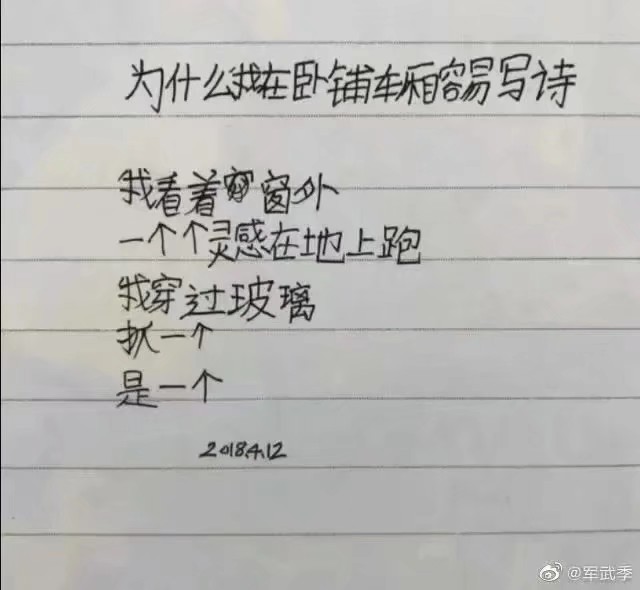 为什么我在卧铺车厢容易写诗
我看着窗外
一个个灵感在地上跑
我穿过玻璃
抓一个
是一个
2018.4.12
@军武季